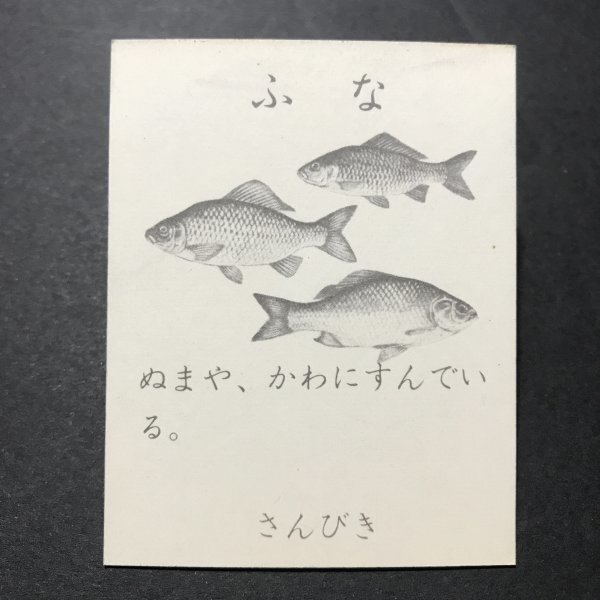 ふな
ぬまや、かわにすんでい
る。
さんびき